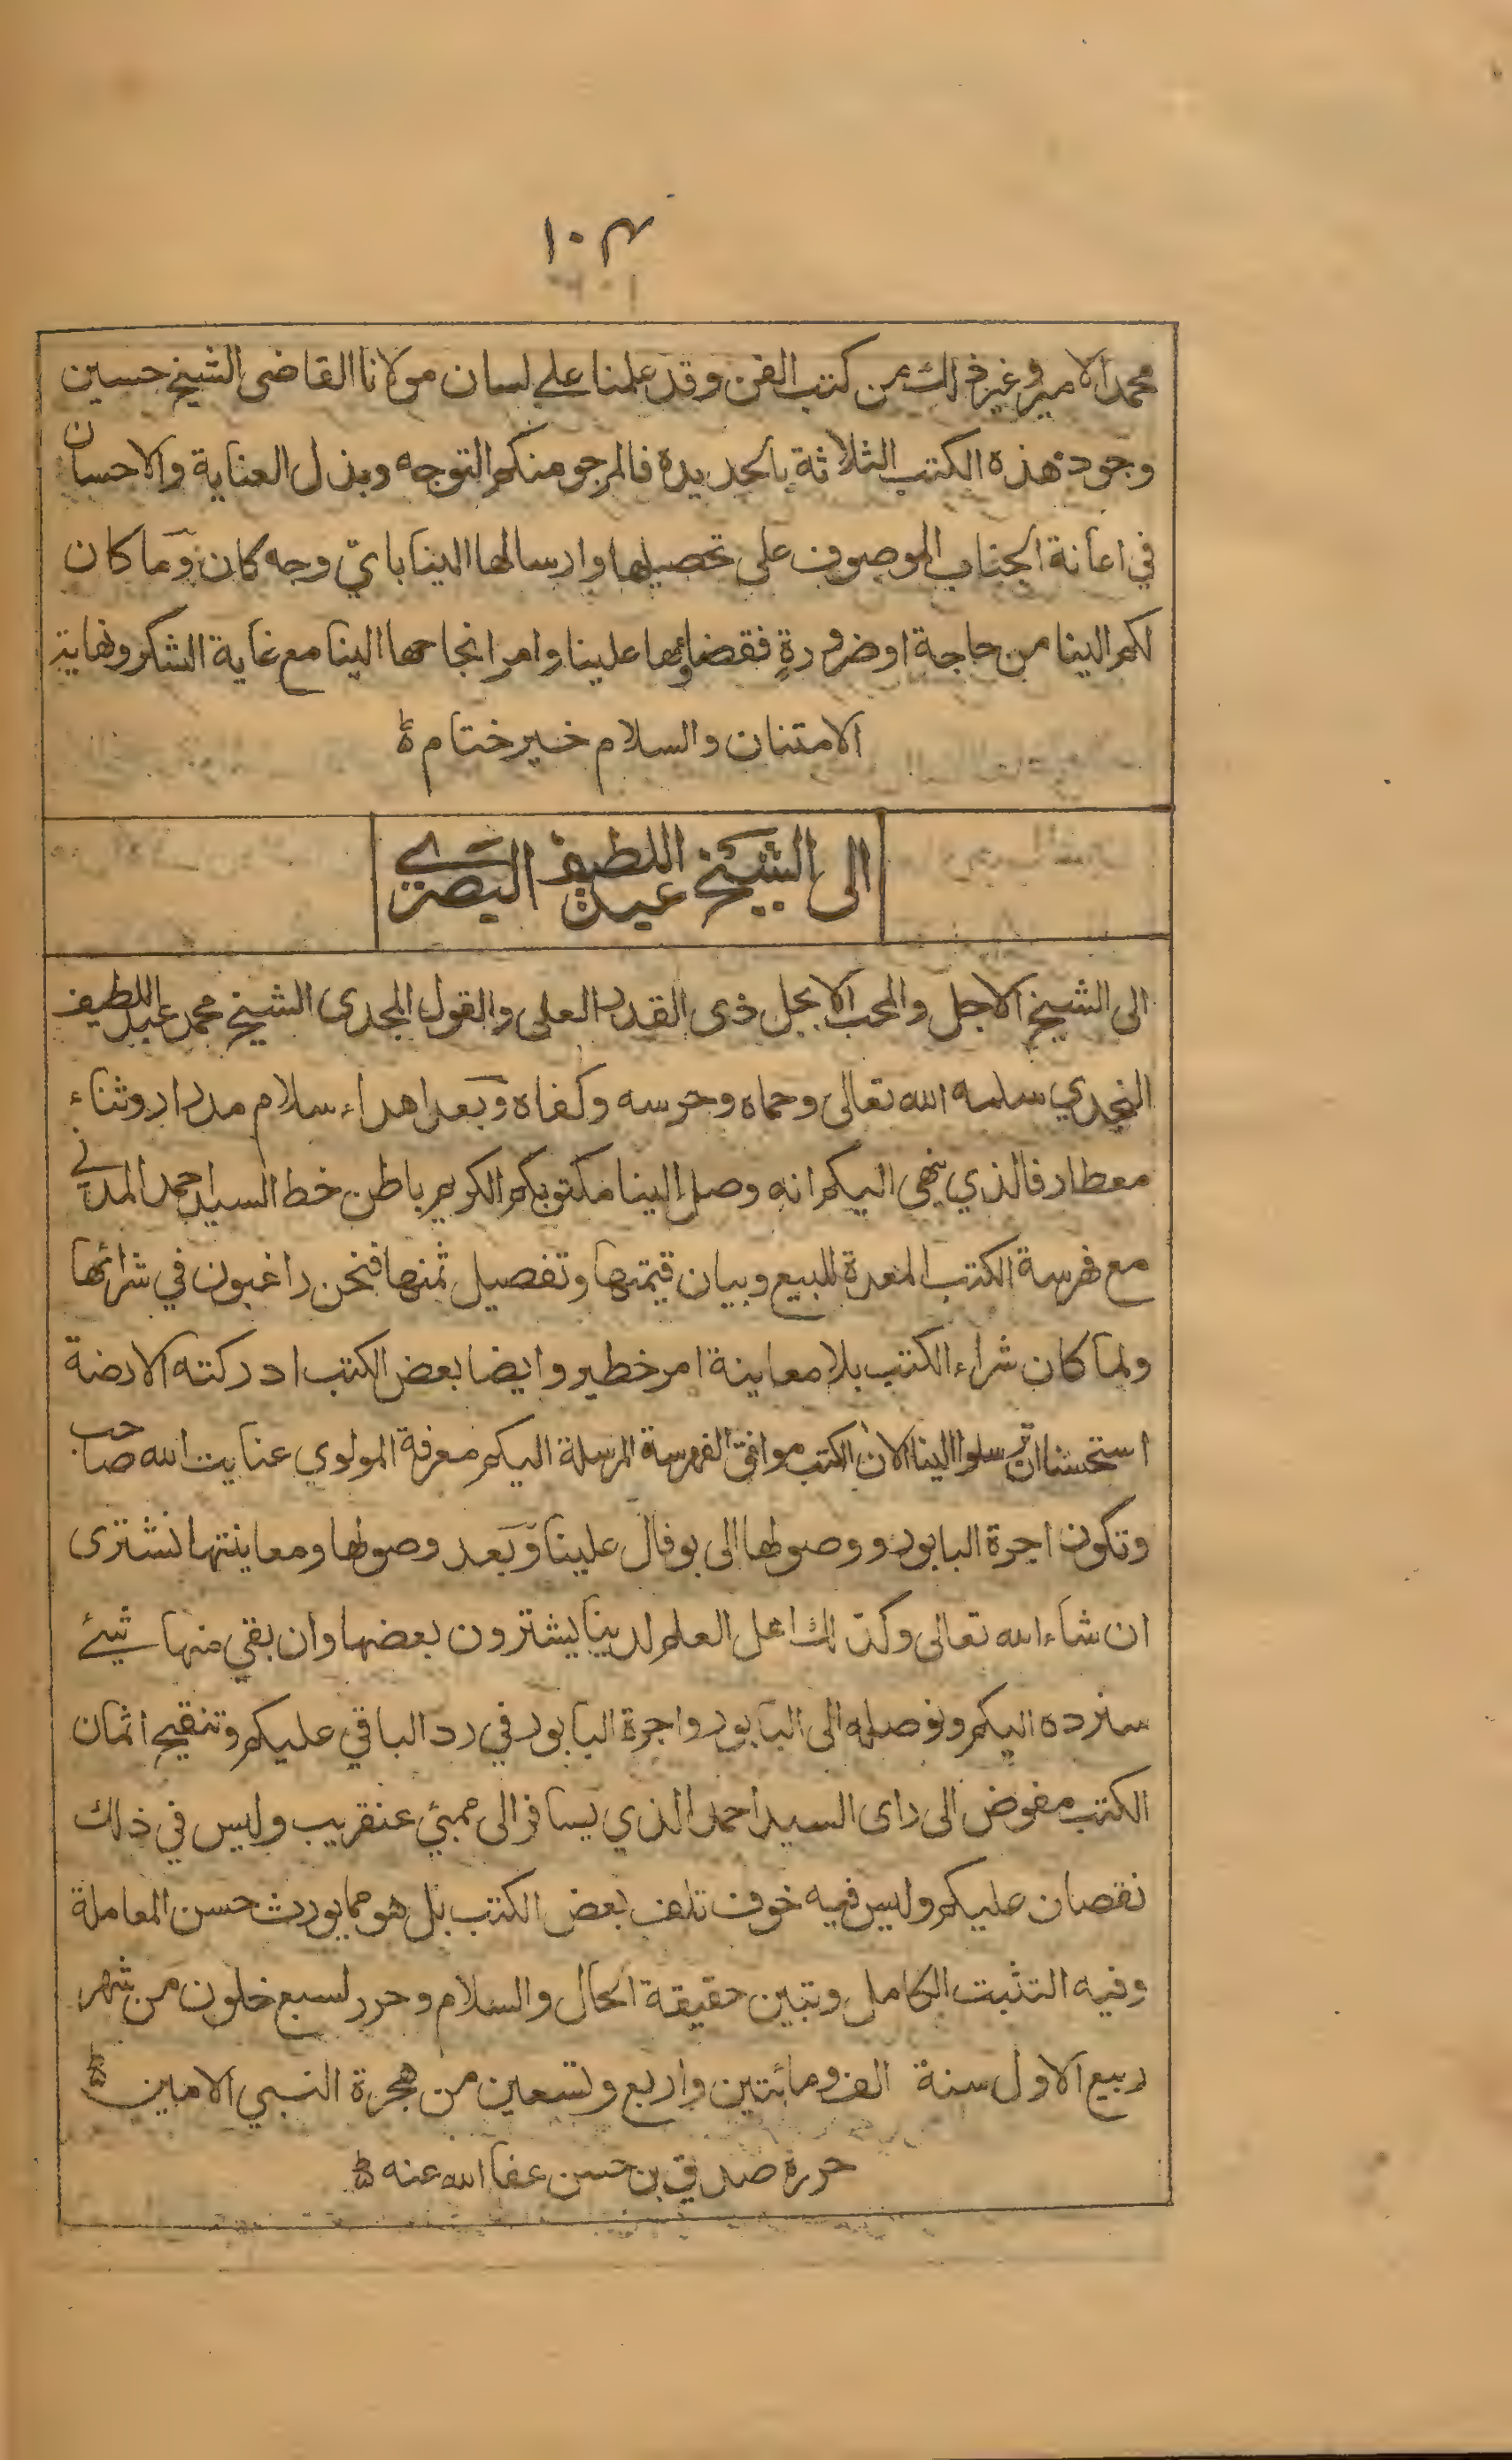 ١٠٤
محمد الامير وغير ذلك من كتب الفن وقد علمنا على لسان مولانا القاضى الشيخ حسين
وجود هذه الكتب الثلاثة بالحديدة فالمرجو منكم التوجه وبذل العناية والاحسان
في اعانة الجناب الموصوف على تحصيلها وارسالها الينا باىّ وجه كان وما كان
لكم الينا من حاجة او ضرورةٍ فقضاؤها علينا وامر انجاحها الينا مع غاية الشكر ونهاية
الامتنان والسلام خير ختام
الى الشيخ عبد اللطيف البصرى
الى الشيخ الاجل والمحب الابجل ذى القدر العلى والقول المجدى الشيخ محمد عبد اللطيف
النجدي سلمه الله تعالى وحماه وحرسه وكفاه وبعد اهداء سلام مدرار وثناء
معطار فالذي ينهى اليكم انه وصل الينا مكتوبكم الكريم باطن خط السيد احمد المدني
مع فهرسة الكتب المعدة للبيع وبيان قيمتها وتفصيل ثمنها فنحن راغبون في شرائها
ولما كان شراء الكتب بلا معاينة امر خطير وايضا بعض الكتب ادركته الارضة
استحسنا ان ترسلوا الينا الان الكتب موافق الفهرسة المرسلة اليكم معرفة المولوي عنايت الله صاحب
وتكون اجرة البابور ووصولها الى بوفال علينا وبعد وصولها ومعاينتها نشترى
ان شاء الله تعالى وكذلك اهل العلم لدينا يشترون بعضها وان بقي منها شيئ
سنرده اليكم ونوصله الى البابور واجرة البابور في رد الباقي عليكم وتنقيح اثمان
الكتب مفوض الى راى السيد احمد الذي يسافر الى ممبئي عنقريب وليس في ذلك
نقصان عليكم وليس فيه خوف تلف بعض الكتب بل هو مما يورث حسن المعاملة
وفيه التثبت الكامل وتبين حقيقة الحال والسلام وحرر لسبع خلون من شهر
ربيع الاول سنة الف ومائتين واربع وتسعين من هجرة النبي الامين
حرره صديق بن حسن عفا الله عنه